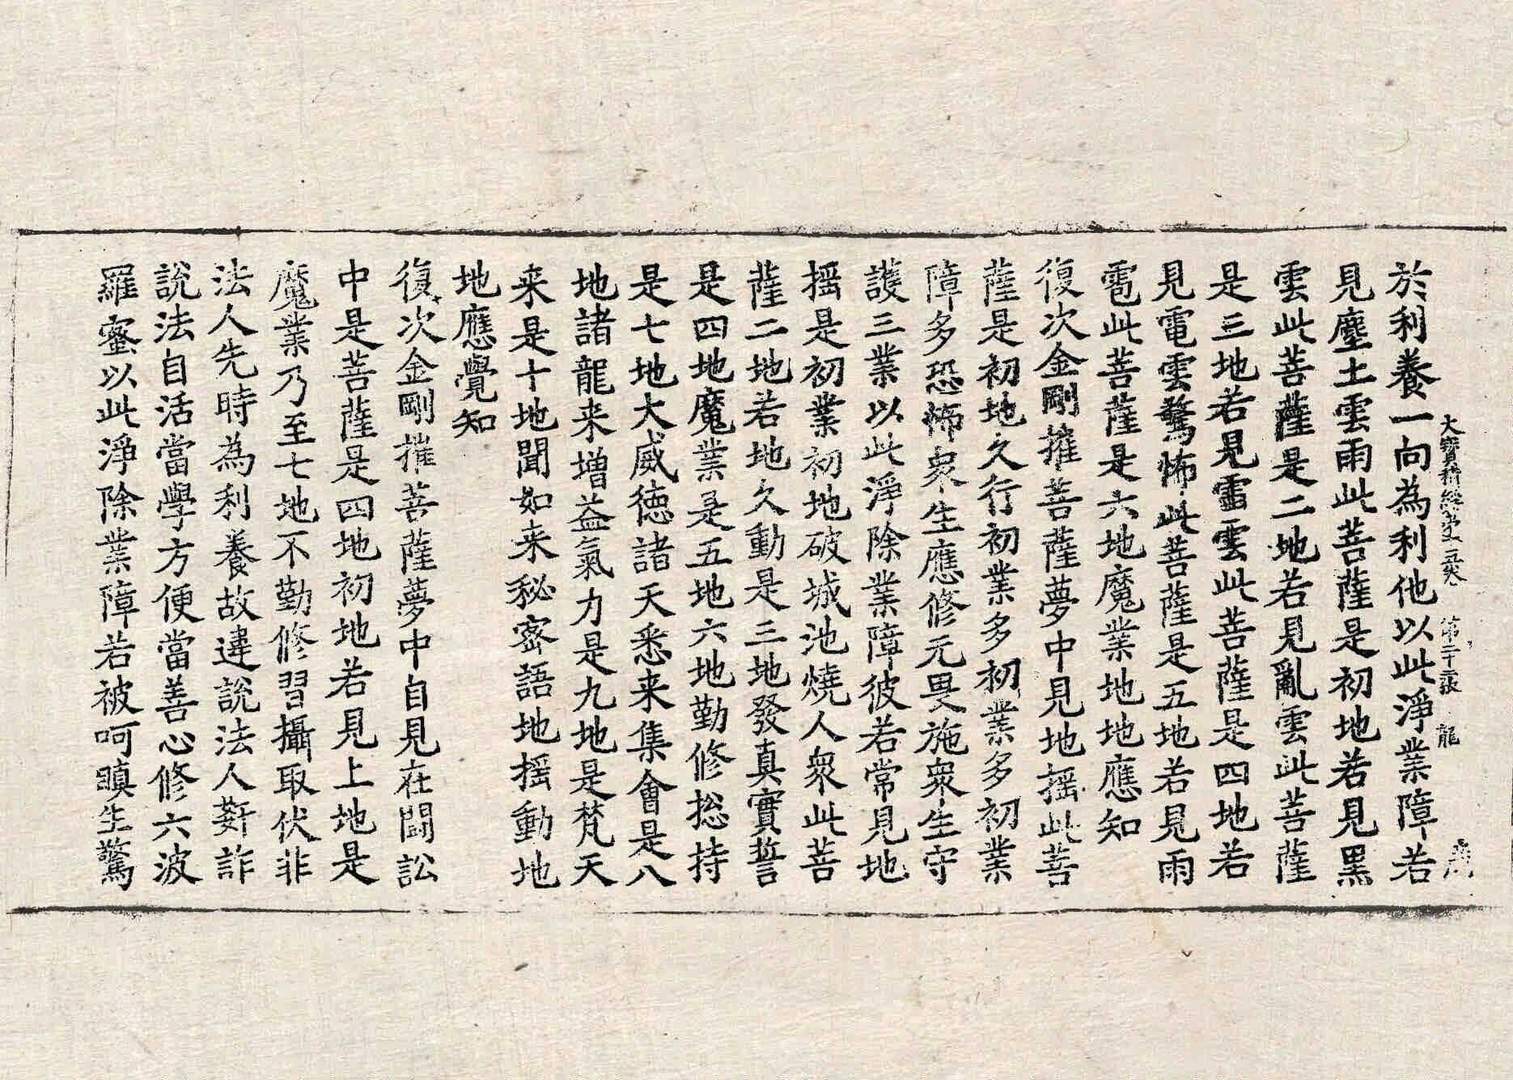 大寶積經 第二十張 龍
於利養一向為利他以此淨業障若
見塵土雲雨此菩薩是初地若見黑
雲此菩薩是二地若見亂雲此菩薩
是三地若見雷雲此菩薩是四地若
見電雲驚怖此菩薩是五地若見雨
雹此菩薩是六地魔業地地應知
復次金剛摧菩薩夢中見地摇此菩
薩是初地久行初業多初業多初業
障多恐怖衆生應修元畏施衆生守
護三業以此淨除業障彼若常見地
摇是初業初地破城池燒人衆此菩
薩二地若地久動是三地發真實誓
是四地魔業是五地六地勤修捴持
是七地大威德諸天悉来集會是八
地諸龍来增益氣力是九地是梵天
来是十地聞如来秘密語地摇動地
地應覺知
復次金剛摧菩薩夢中自見在鬪訟
中是菩薩是四地初地若見上地是
魔業乃至七地不勤修習攝取伏非
法人先時為利養故違說法人姧詐
說法自活當學方便當善心修六波
羅蜜以此淨除業障若被呵瞋生驚